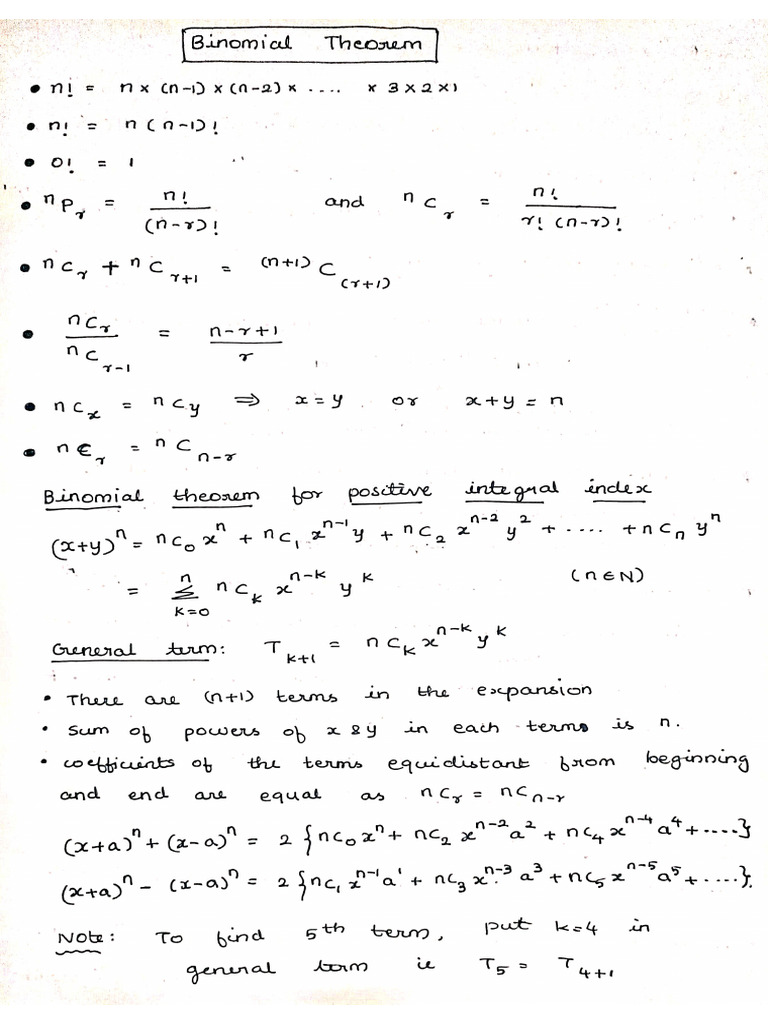 Binomial Theorem
• n! = n × (n-1) × (n-2) × .... × 3 × 2 × 1
• n! = n (n-1)!
• 0! = 1
• ⁿPᵣ = n! / (n-r)! and ⁿCᵣ = n! / r! (n-r)!
• ⁿCᵣ + ⁿC_{r+1} = ^{(n+1)}C_{(r+1)}
• nCᵣ / nC_{r-1} = n-r+1 / r
• nCₓ = nC_y ⇒ x = y or x+y = n
• nCᵣ = ⁿC_{n-r}
Binomial theorem for positive integral index
(x+y)ⁿ = nC₀xⁿ + nC₁x^{n-1}y + nC₂x^{n-2}y² + .... + nCₙyⁿ
= Σ_{k=0}^{n} nC_k x^{n-k} y^k (n∈N)
General term: T_{k+1} = nC_k x^{n-k} y^k
• There are (n+1) terms in the expansion
• Sum of powers of x & y in each terms is n.
• coefficients of the terms equidistant from beginning
and end are equal as nCᵣ = nC_{n-r}
(x+a)ⁿ + (x-a)ⁿ = 2 {nC₀xⁿ + nC₂x^{n-2}a² + nC₄x^{n-4}a⁴ + ....}
(x+a)ⁿ - (x-a)ⁿ = 2 {nC₁x^{n-1}a¹ + nC₃x^{n-3}a³ + nC₅x^{n-5}a⁵ + ....}
Note: To find 5th term, put k=4 in
general term ie T₅ = T_{4+1}